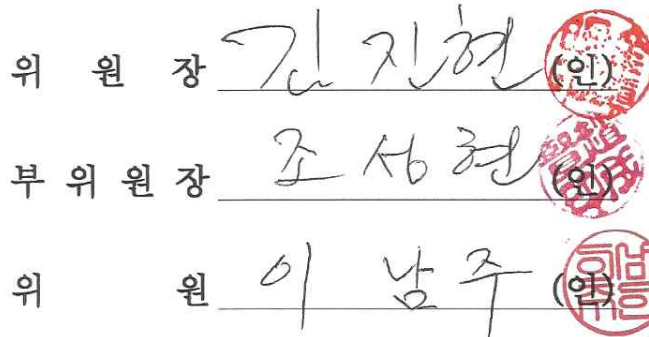 위 원 장 김 진 현 (인)
부 위 원 장 조 성 현 (인)
위 원 이 남 주 (인)